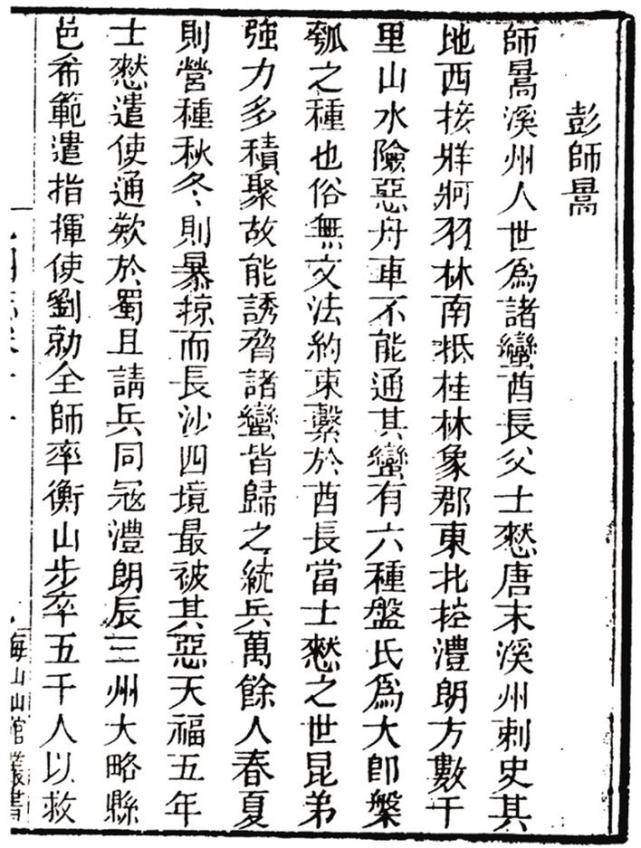 彭師暠
師暠溪州人世爲諸蠻酋長父士愁唐末溪州剌史其
地西接牂牁羽林南抵桂林象郡東北控澧朗方數千
里山水險惡舟車不能通其蠻有六種盤氏爲大卽槃
瓠之種也俗無文法約束繫於酋長當士愁之世昆弟
強力多積聚故能誘脅諸蠻皆歸之統兵萬餘人春夏
則營種秋冬則暴掠而長沙四境最被其惡天福五年
士愁遣使通欵於蜀且請兵同冦澧朗辰三州大略縣
邑希範遣指揮使劉勍全師率衡山步卒五千人以救
海山仙館叢書